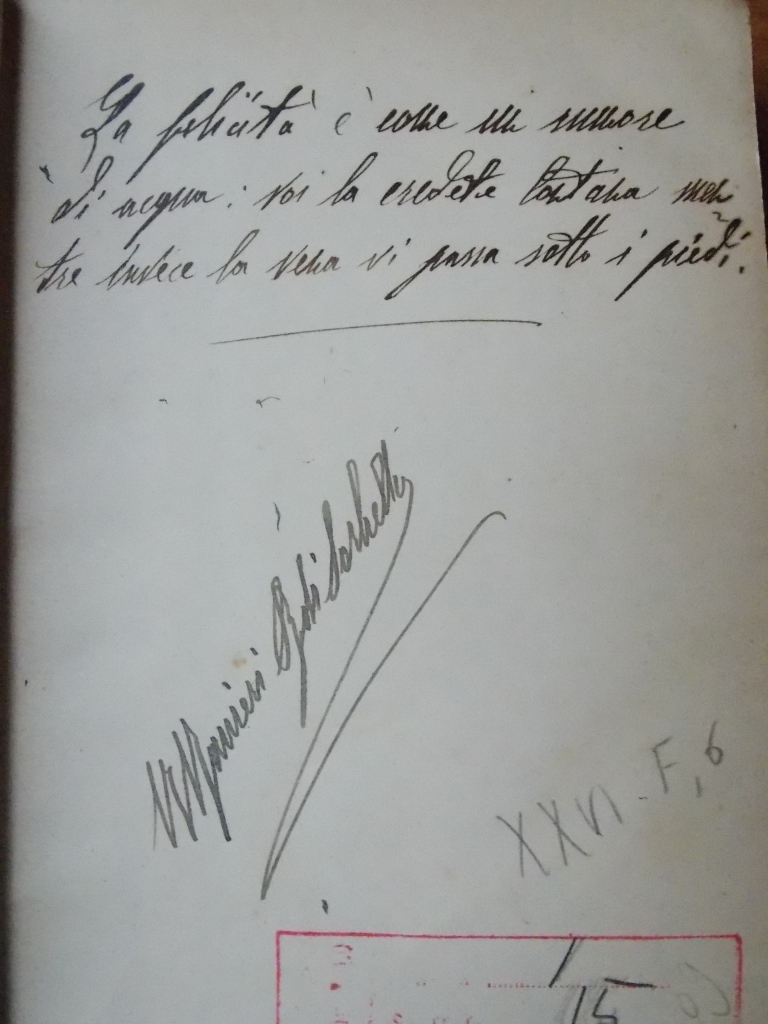 La felicità è come un rumore
di acqua: voi la credete lontana men
tre invece la vena vi passa sotto i piedi.
XXVI-F,6
15